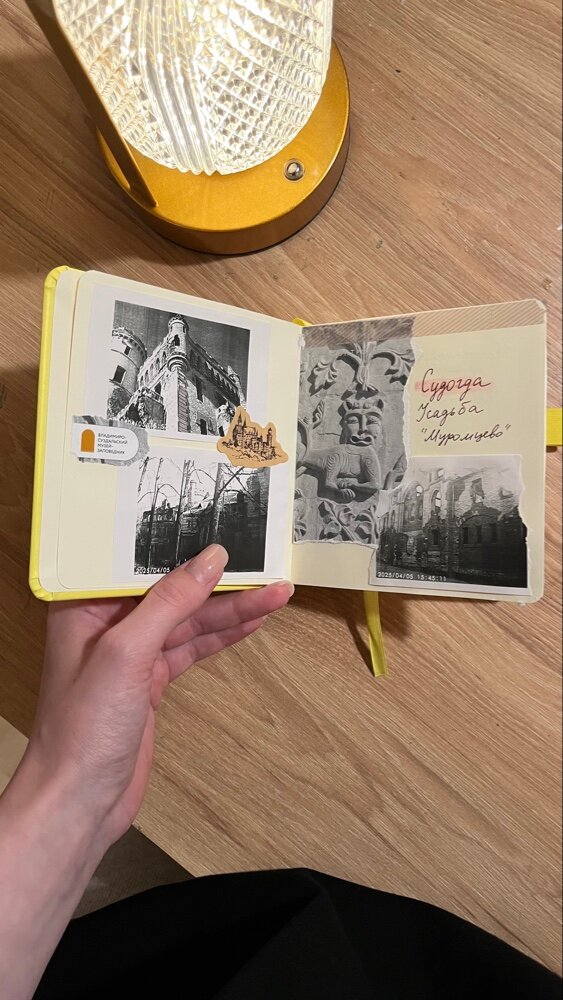 ВЛАДИМИРО-
СУЗДАЛЬСКИЙ
МУЗЕЙ-
ЗАПОВЕДНИК
2025/04/05
Судогда
Усадьба
"Муромцево"
2025/04/05 15:45:11